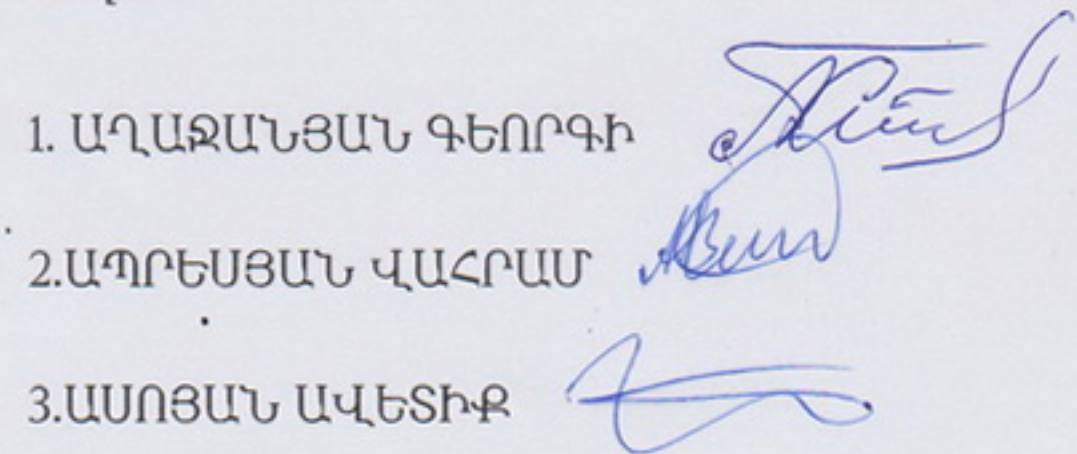 1. ԱՂԱՋԱՆՅԱՆ ԳԵՈՐԳԻ
2.ԱՊՐԵՍՅԱՆ ՎԱՀՐԱՄ
3.ԱՍՈՅԱՆ ԱՎԵՏԻՔ